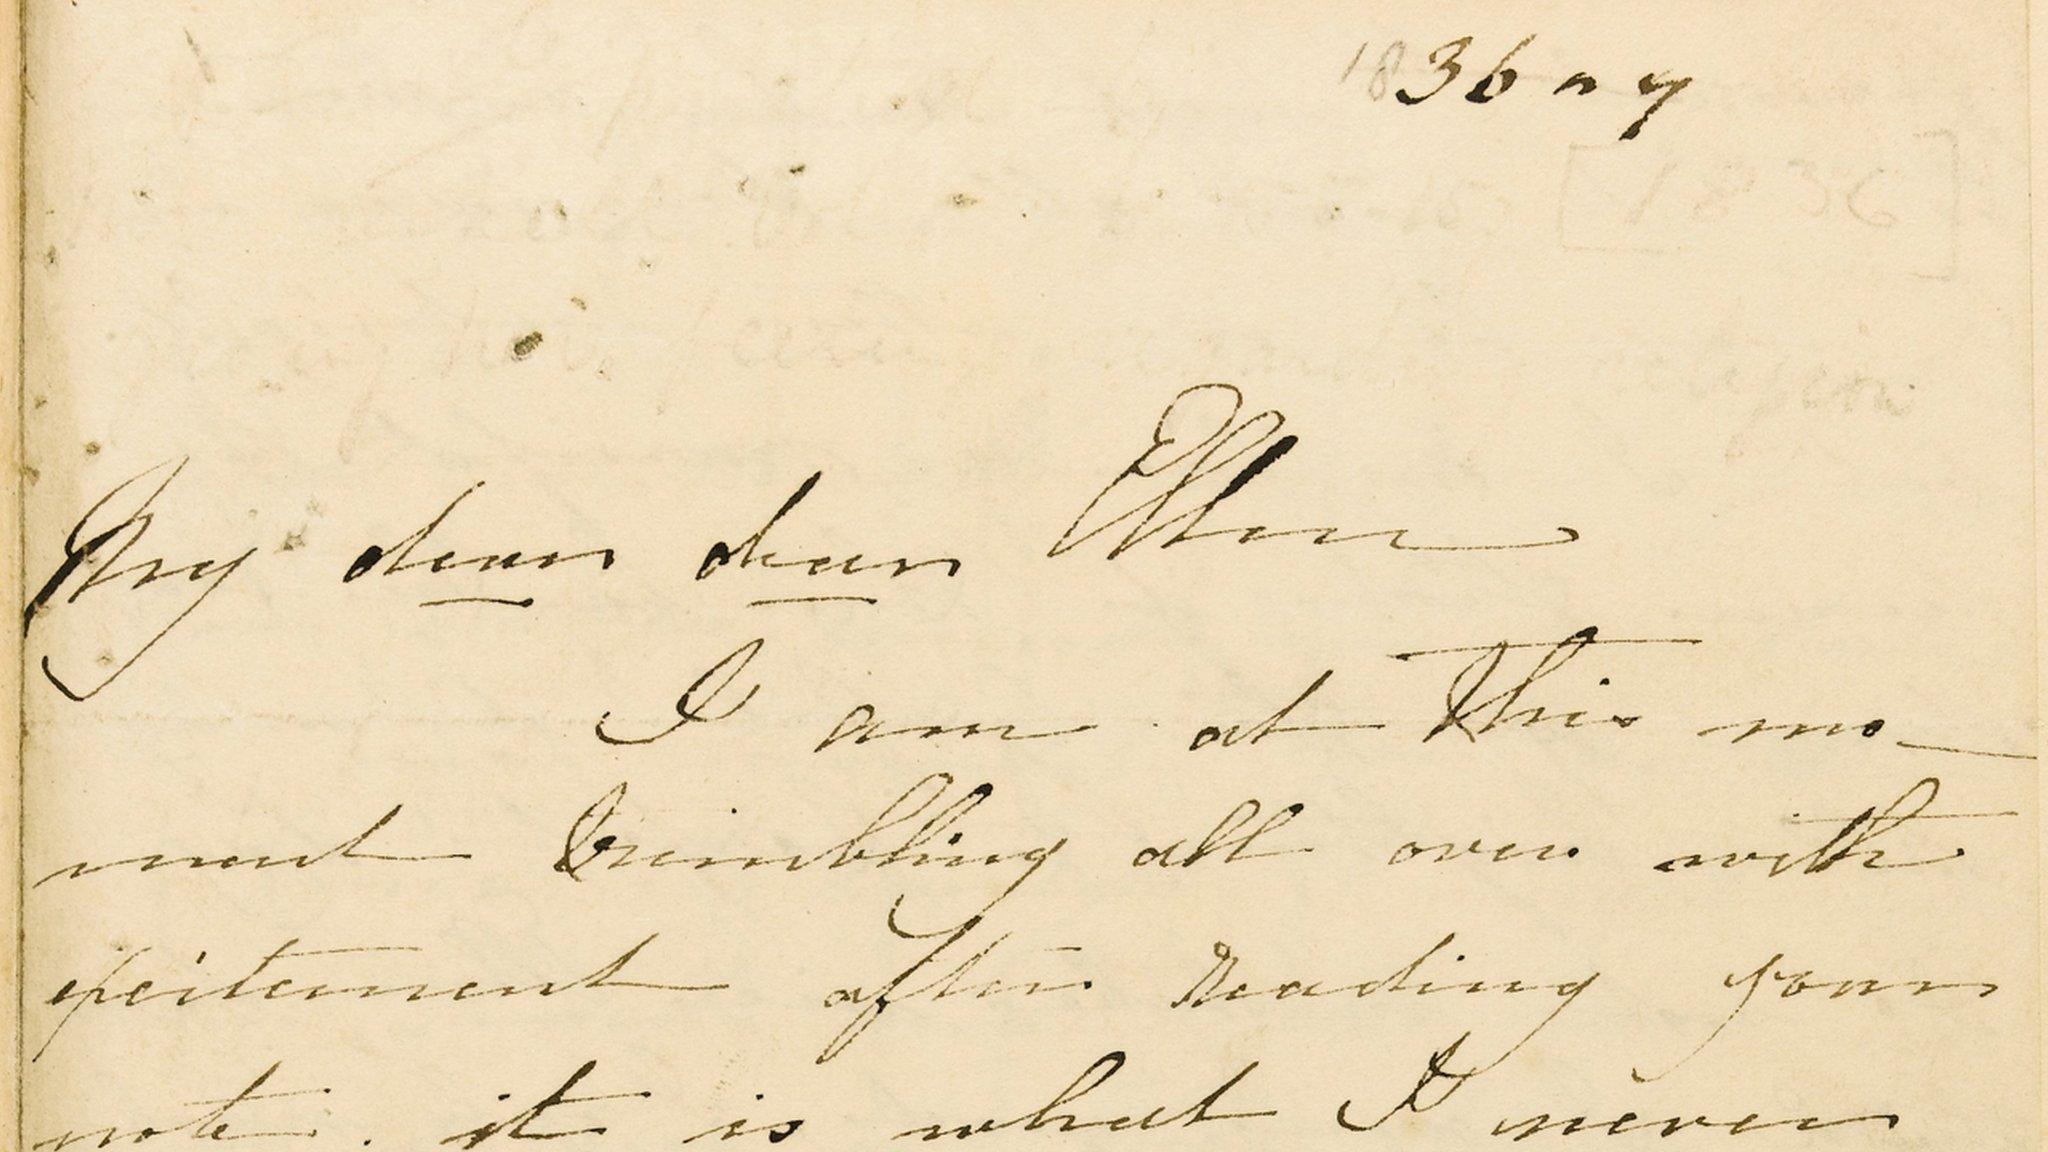 1836 or 7
My dear dear Ellen
I am at this mo-
ment trembling all over with
excitement after reading your
note. it is what I never